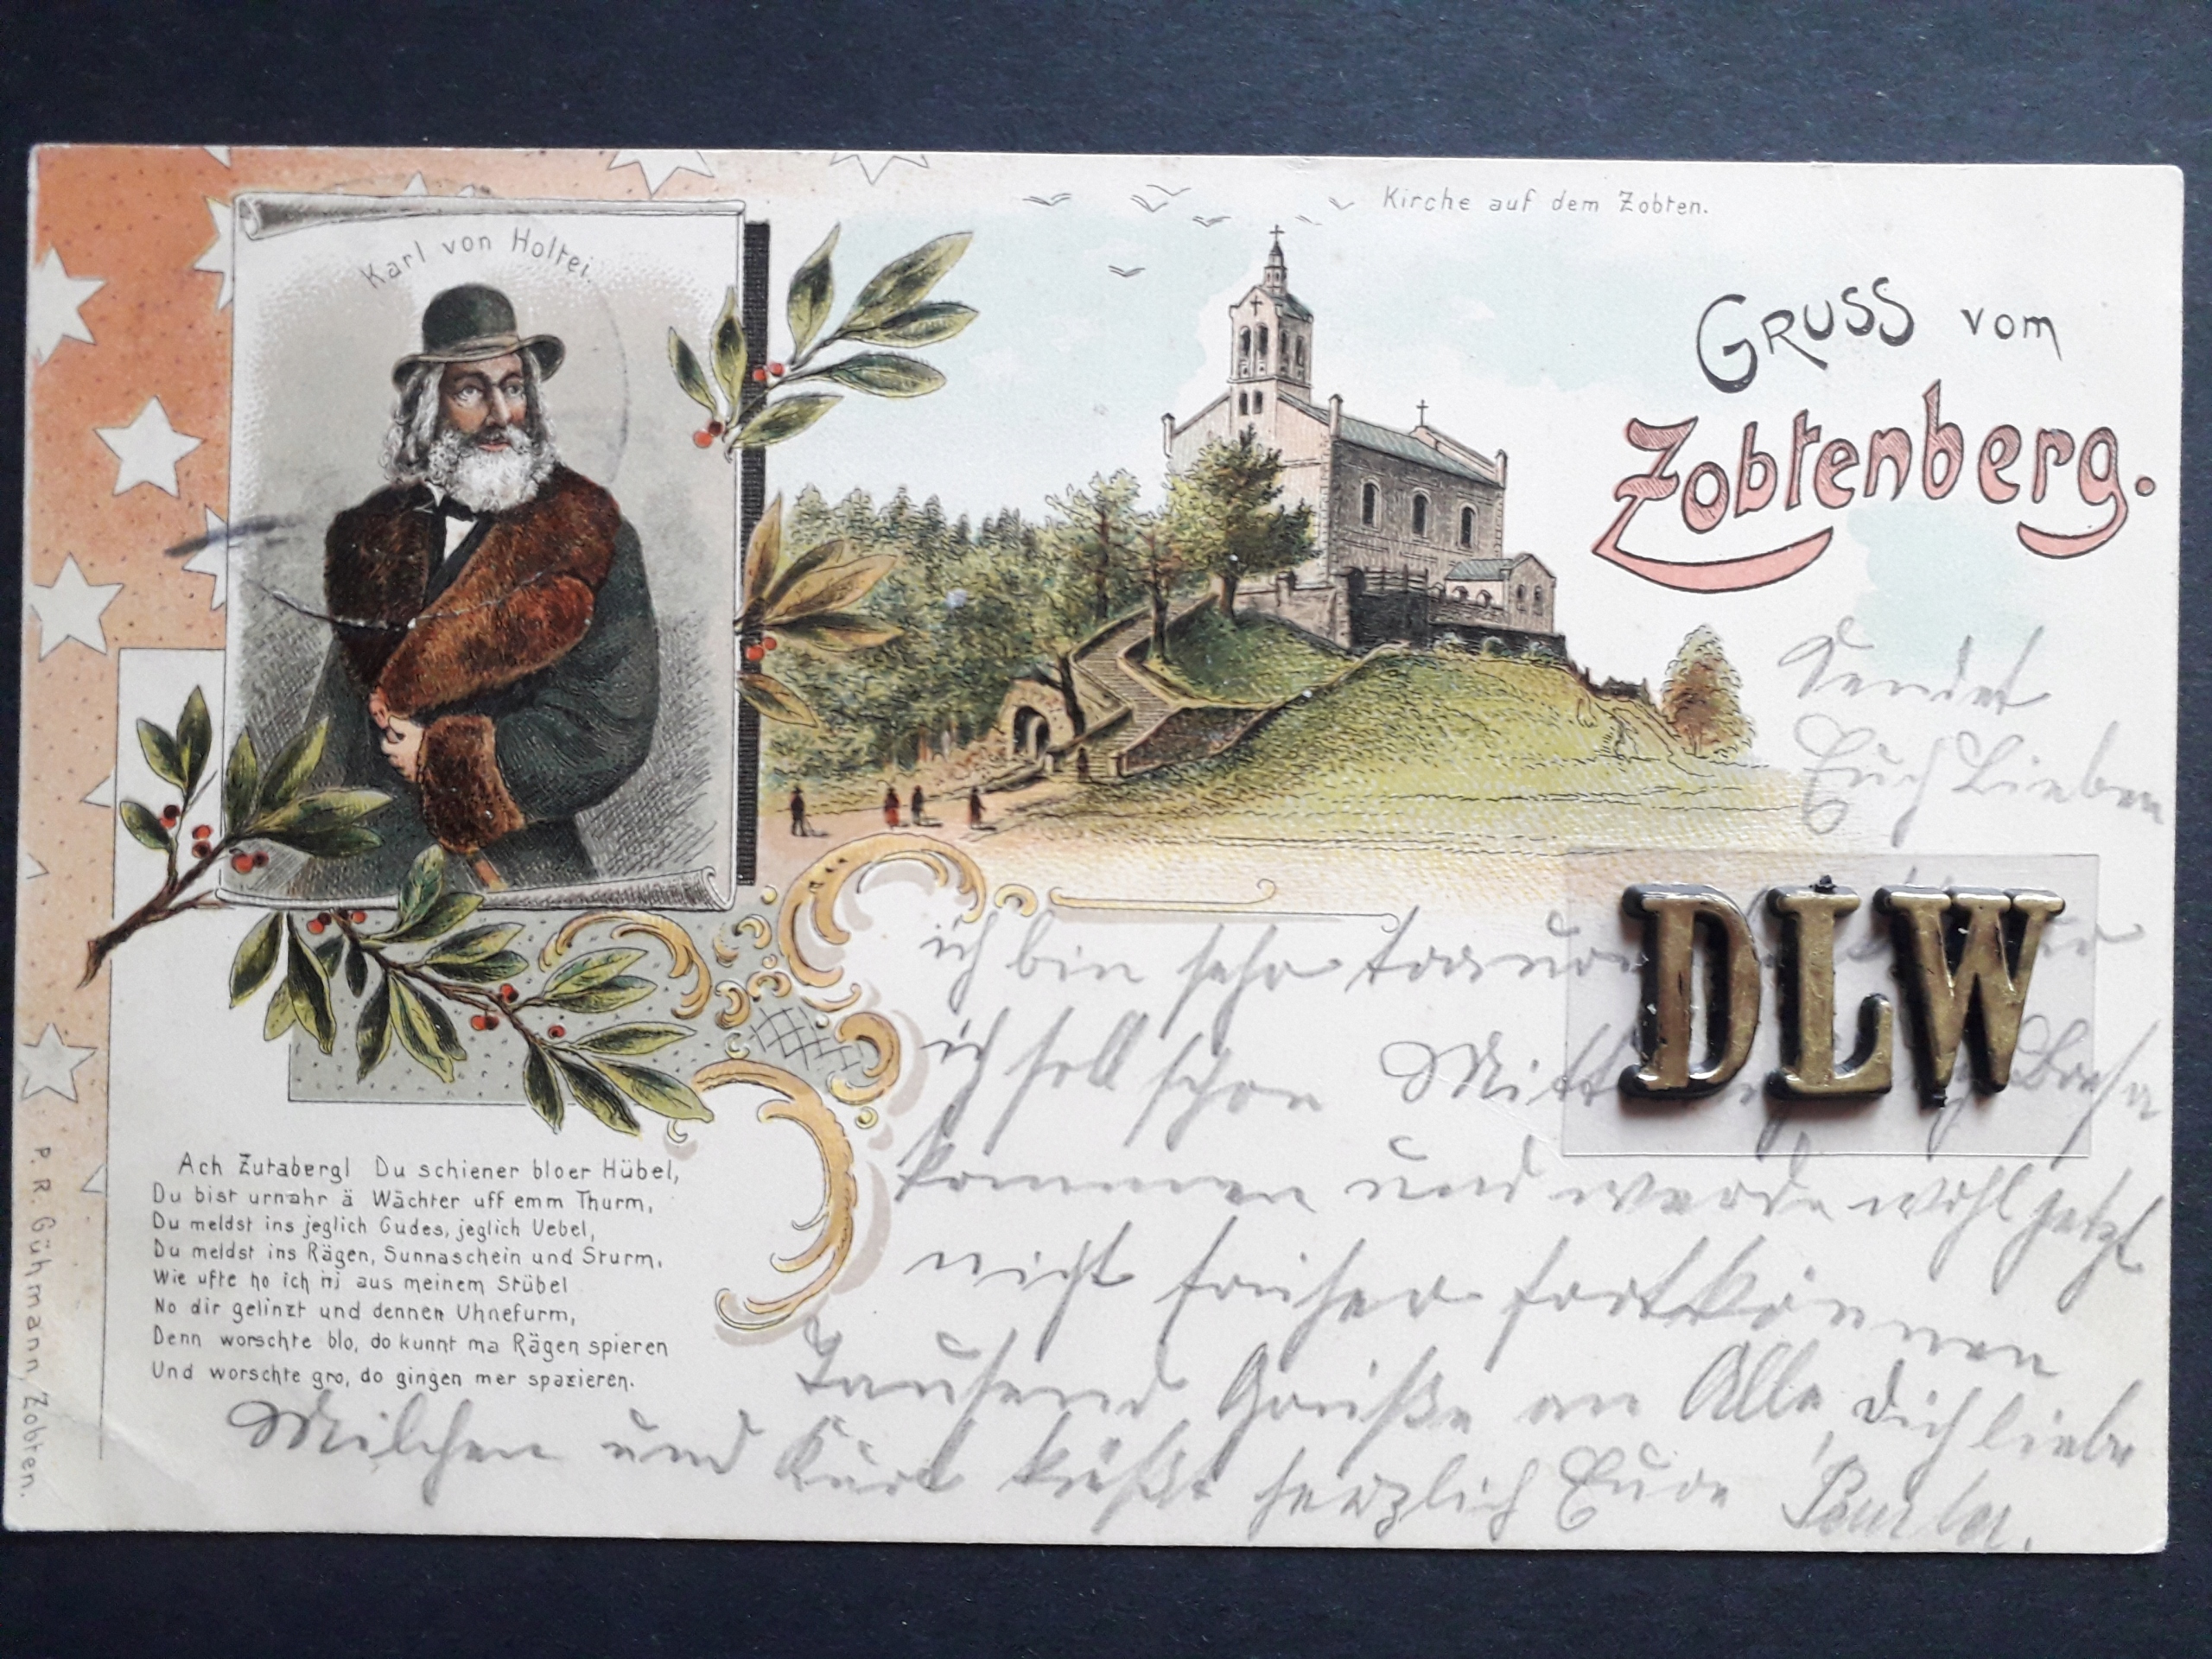 Karl von Holtei.
Kirche auf dem Zobten.
Gruss vom
Zobtenberg.
Sendet
Euch Lieben
DLW
ich bin sehr
ich soll schon
kommen und werde wohl jetzt
nicht früher fortkönnen
Tausend Grüße an Alle, Dich liebe
Milchen und Kurt küßt herzlich Eure
Ach Zutabergl Du schiener bloer Hübel,
Du bist urnahr ä Wächter uff emm Thurm,
Du meldst ins jeglich Gudes, jeglich Uebel,
Du meldst ins Rägen, Sunnaschein und Sturm.
Wie ufte ho ich ni aus meinem Stübel
No dir gelinzt und dennen Uhnefurm,
Denn worschte blo, do kunnt ma Rägen spieren
Und worschte gro, do gingen mer spazieren.
P. R. Gühmann, Zobten.